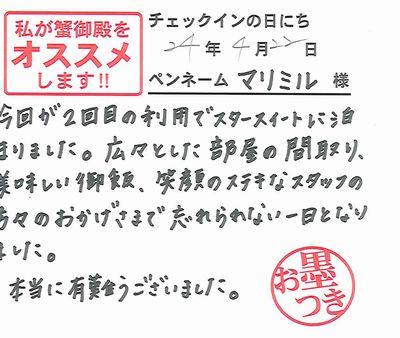 私が蟹御殿を
オススメ
します!!
チェックインの日にち
24年4月22日
ペンネーム マリミル 様
今回が2回目の利用でスタースイートに泊
まりました。広々とした部屋の間取り、
美味しい御飯、笑顔のステキなスタッフの
方々のおかげさまで忘れられない一日となり
ました。
本当に有難うございました。
お墨つき